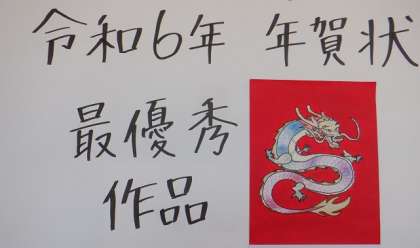 令和6年 年賀状
最優秀
作品